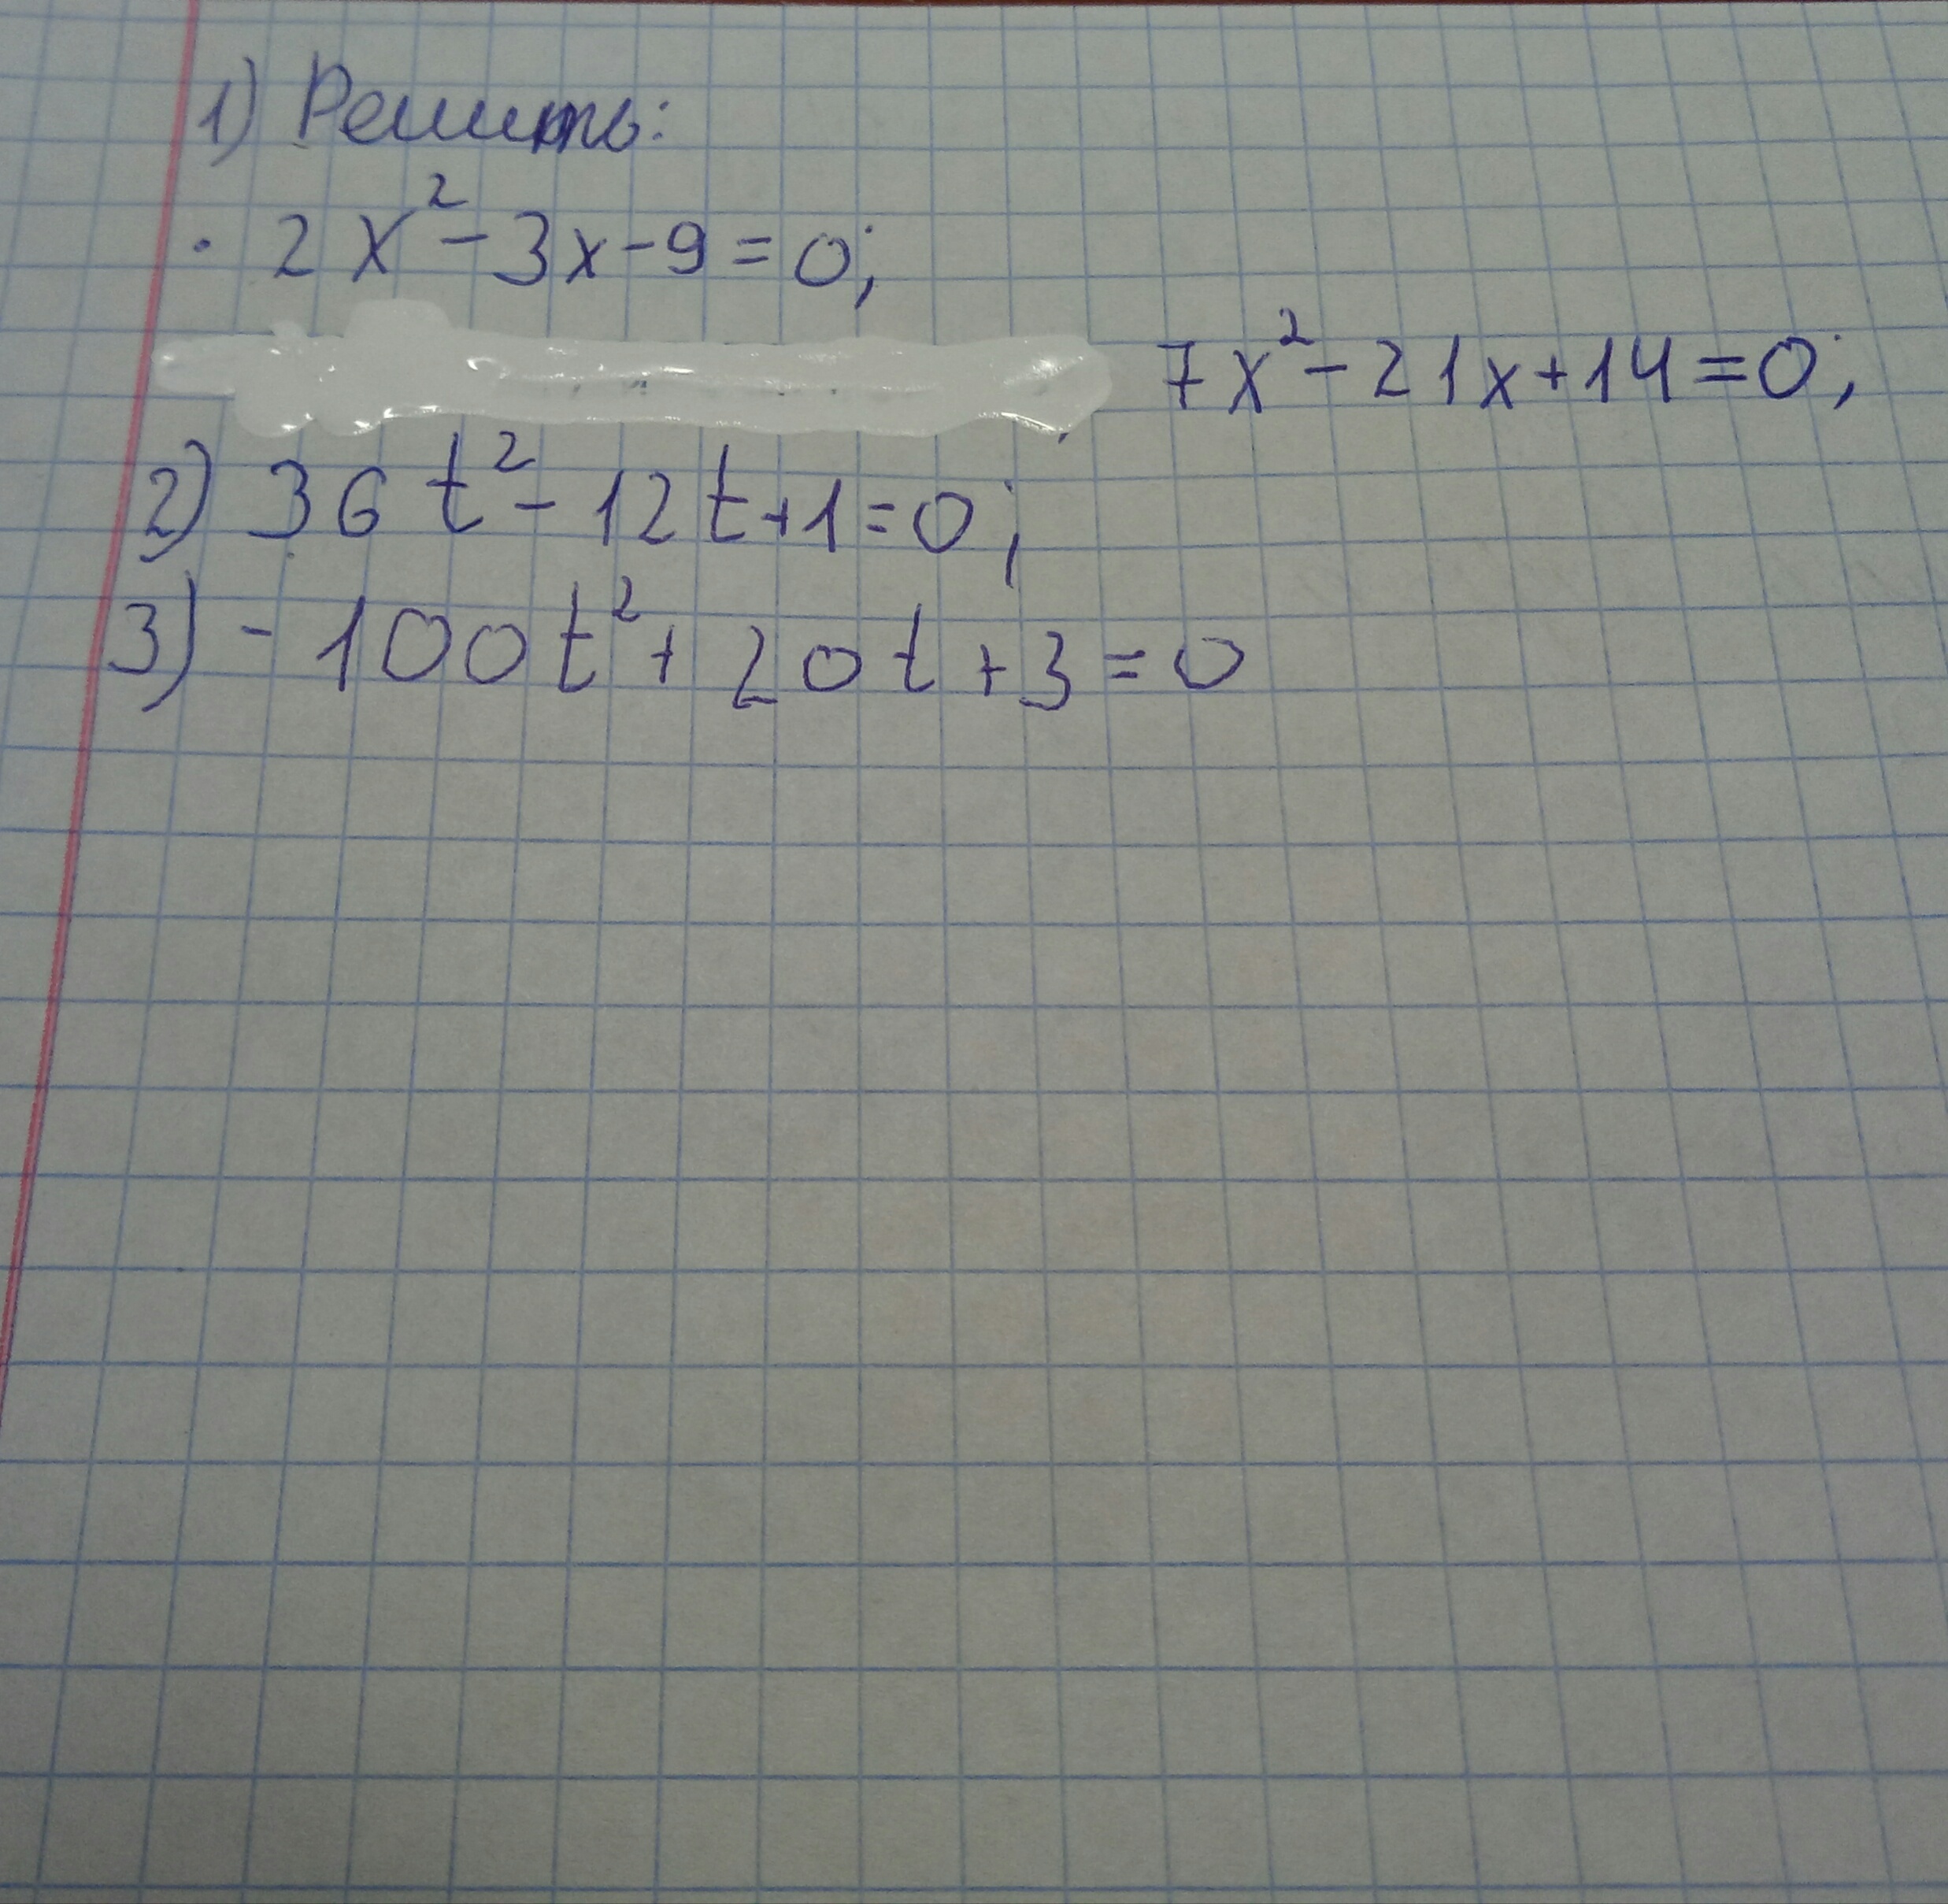 1) Решить:
· 2x² - 3x - 9 = 0;
7x² - 21x + 14 = 0;
2) 36t² - 12t + 1 = 0;
3) - 100t² + 20t + 3 = 0